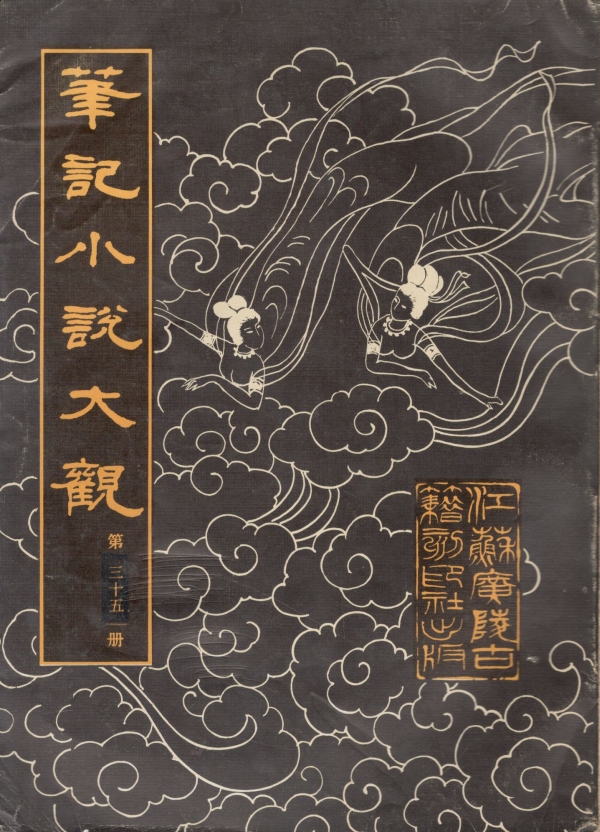 筆記小說大觀
第三十五冊
江蘇廣陵古
籍刻印社出版